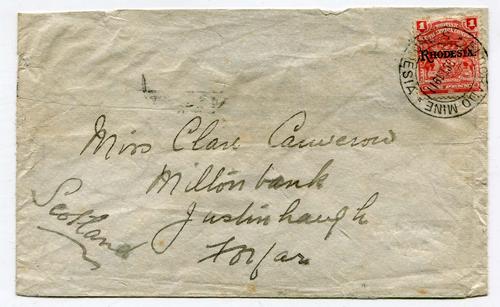 1 1
RHODESIA.
MINE
Miss Clare Cameron
Miltonbank
Justinhaugh
Forfar
Scotland